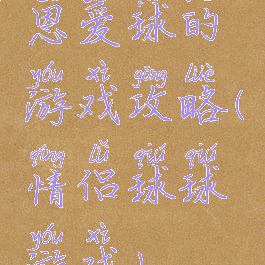 恩爱球的
yóu xì gōng lüè
游戏攻略(
qíng lǚ qiú qiú
情侣球球
yóu xì
游戏)